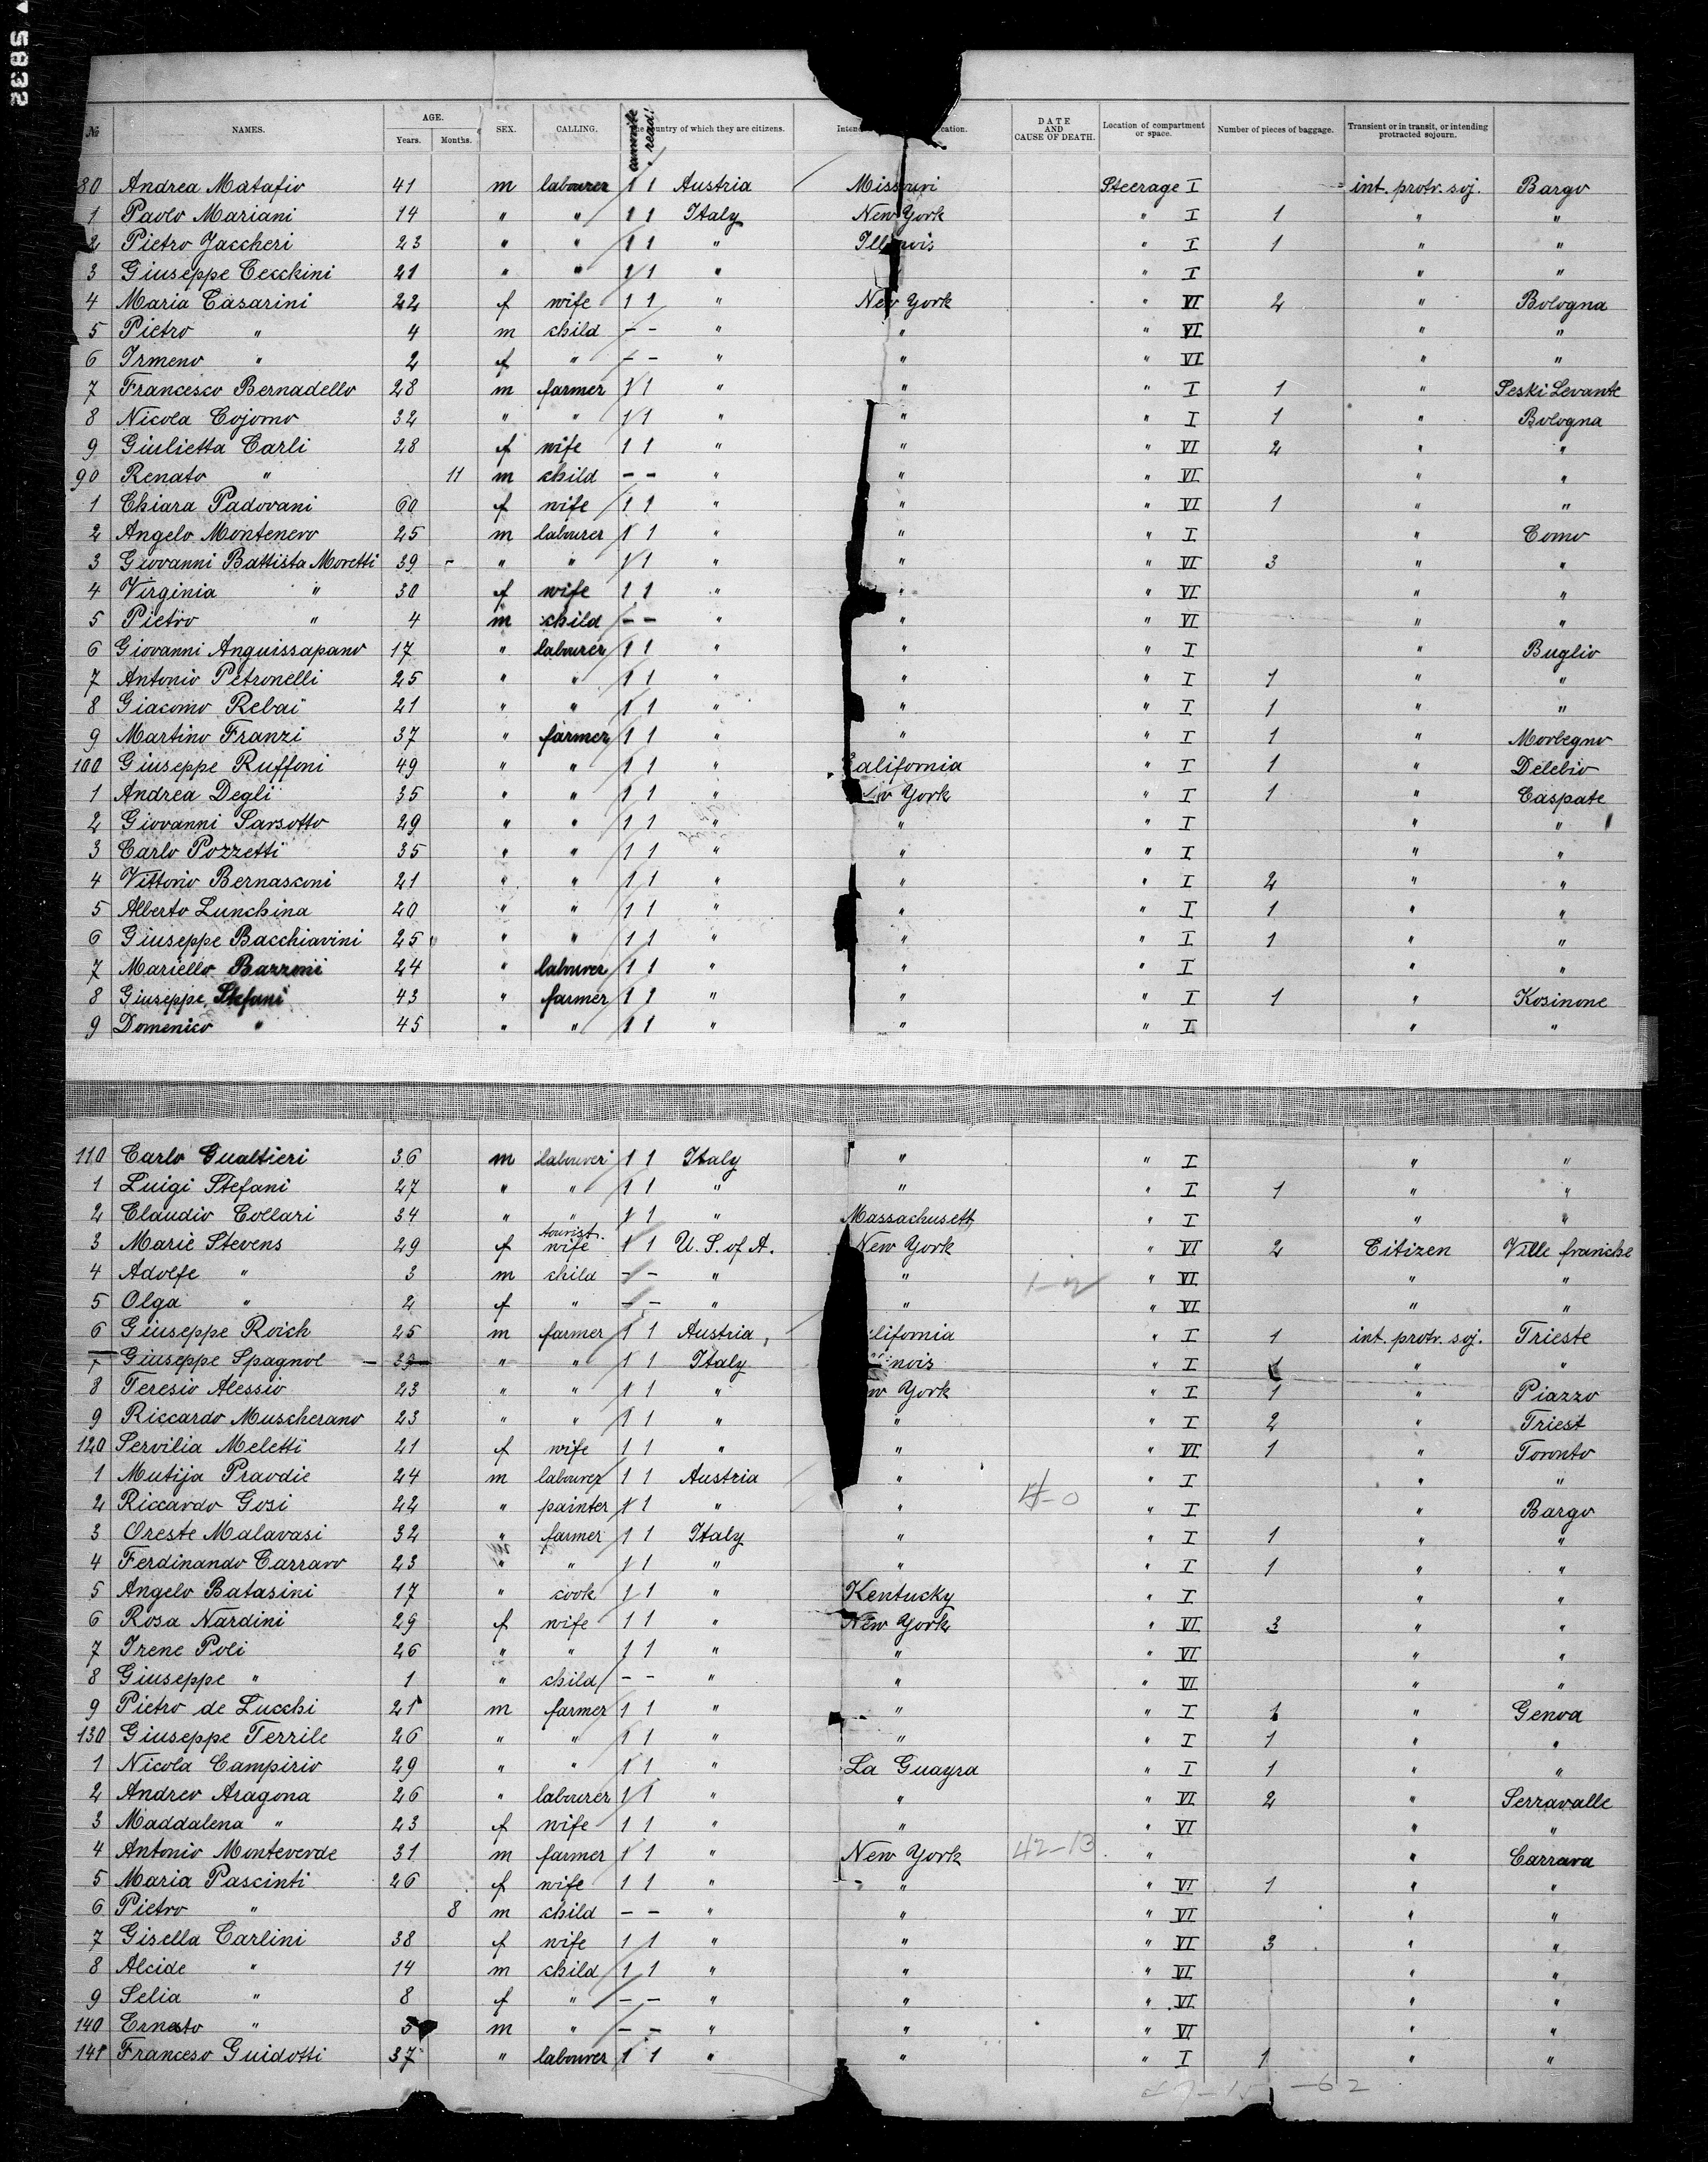 5832
No NAMES. AGE. Years. Months. SEX. CALLING. can write read. country of which they are citizens. DATE AND CAUSE OF DEATH. Location of compartment or space. Number of pieces of baggage. Transient or in transit, or intending protracted sojourn.
80 Andrea Matafio 41 m labourer 1 1 Austria Missouri Steerage I int. protr. soj. Bargo
1 Paolo Mariani 14 " " 1 1 Italy New York " I 1 " "
2 Pietro Jaccheri 23 " " 1 1 " Illinois " I 1 " "
3 Giuseppe Cecchini 21 " " 1 1 " " I " "
4 Maria Casarini 22 f wife 1 1 " New York " VI 2 " Bologna
5 Pietro " 4 m child – – " " " VI " "
6 Irmeno " 2 f " – – " " " VI " "
7 Francesco Bernadello 28 m farmer 1 1 " " " I 1 " Seski Levante
8 Nicola Cojomo 32 " " 1 1 " " " I 1 " Bologna
9 Giulietta Carli 28 f wife 1 1 " " " VI 2 " "
90 Renato " 11 m child – – " " " VI " "
1 Chiara Padovani 60 f wife 1 1 " " " VI 1 " "
2 Angelo Montenero 25 m labourer 1 1 " " " I " Como
3 Giovanni Battista Moretti 39 – " " 1 1 " " " VI 3 " "
4 Virginia " 30 f wife 1 1 " " " VI " "
5 Pietro " 4 m child – – " " " VI " "
6 Giovanni Anguissapano 17 " labourer 1 1 " " " I " Buglio
7 Antonio Petronelli 25 " " 1 1 " " " I 1 " "
8 Giacomo Rebai 21 " " 1 1 " " " I 1 " "
9 Martino Franzi 37 " farmer 1 1 " " " I 1 " Morbegno
100 Giuseppe Ruffoni 49 " " 1 1 " California " I 1 " Delebio
1 Andrea Degli 35 " " 1 1 " York " I 1 " Caspate
2 Giovanni Sarsotto 29 " " 1 1 " " " I " "
3 Carlo Pozzetti 35 " " 1 1 " " " I " "
4 Vittorio Bernasconi 21 " " 1 1 " " " I 2 " "
5 Alberto Lunchina 20 " " 1 1 " " " I 1 " "
6 Giuseppe Bacchiavini 25 " " 1 1 " " " I 1 " "
7 Mariello Bazzoni 24 " labourer 1 1 " " " I " "
8 Giuseppe Stefani 43 " farmer 1 1 " " " I 1 " Kosinone
9 Domenico " 45 " " 1 1 " " " I " "
110 Carlo Gualtieri 36 m labourer 1 1 Italy " " I " "
1 Luigi Stefani 27 " " 1 1 " " " I 1 " "
2 Claudio Collari 34 " " 1 1 " Massachusett " I " "
3 Marie Stevens 29 f tourist. wife 1 1 U. S. of A. New York " VI 2 Citizen Ville franche
4 Adolfe " 3 m child – – " " " VI " "
5 Olga " 2 f " – – " " " VI " "
6 Giuseppe Roich 25 m farmer 1 1 Austria lifornia " I 1 int. protr. soj. Trieste
7 Giuseppe Spagnol 39 " " 1 1 Italy inois " I 1 " "
8 Teresio Alessio 23 " " 1 1 " w York " I 1 " Piazzo
9 Riccardo Muscherano 23 " " 1 1 " " " I 2 " Triest
120 Servilia Meletti 21 f wife 1 1 " " " VI 1 " Toronto
1 Mutija Pravdic 24 m labourer 1 1 Austria " " I " "
2 Riccardo Gosi 22 " painter 1 1 " " " I " Bargo
3 Oreste Malavasi 32 " farmer 1 1 Italy " " I 1 " "
4 Ferdinando Carraro 23 " " 1 1 " " " I 1 " "
5 Angelo Batasini 17 " cook 1 1 " Kentucky " I " "
6 Rosa Nardini 29 f wife 1 1 " New York " VI 3 " "
7 Irene Poli 26 " " 1 1 " " " VI " "
8 Giuseppe " 1 " child – – " " " VI " "
9 Pietro de Lucchi 21 m farmer 1 1 " " " I 1 " Genoa
130 Giuseppe Terrile 26 " " 1 1 " " " I 1 " "
1 Nicola Campirio 29 " " 1 1 " La Guayra " I 1 " "
2 Andreo Aragona 26 " labourer 1 1 " " " VI 2 " Serravalle
3 Maddalena " 23 f wife 1 1 " " " VI " "
4 Antonio Monteverde 31 m farmer 1 1 " New York 42–13 " " Carrara
5 Maria Pascinti 26 f wife 1 1 " " " VI 1 " "
6 Pietro " 8 m child – – " " " VI " "
7 Gisella Carlini 38 f wife 1 1 " " " VI 3 " "
8 Alcide " 14 m child 1 1 " " " VI " "
9 Selia " 8 f " – – " " " VI " "
140 Ernesto " 5 m " – – " " " VI " "
141 Franceso Guidotti 37 " labourer 1 1 " " " I 1 " "